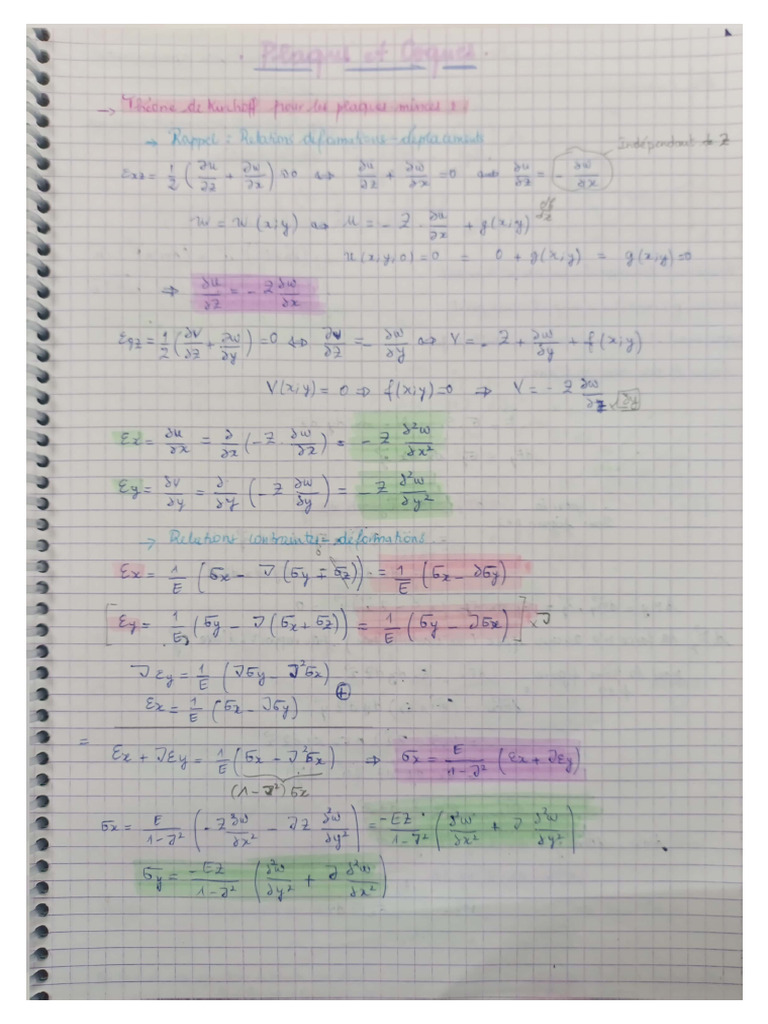 . Plaques et Coques .
→ Théorie de Kirchoff pour les plaques minces :
→ Rappel : Relations déformations - déplacements
Indépendant de Z
εxz = 1/2 (∂u/∂z + ∂w/∂x) = 0 ⇔ ∂u/∂z + ∂w/∂x = 0 ⇔ ∂u/∂z = - ∂w/∂x
w = w (x;y) ⇒ u = - Z . ∂u/∂x + g(x;y)
u(x;y,0) = 0 = 0 + g(x;y) = g(x;y) = 0
⇒ ∂u/∂z = - Z ∂w/∂x
εyz = 1/2 (∂V/∂z + ∂w/∂y) = 0 ⇔ ∂V/∂z = - ∂w/∂y ⇒ V = - Z + ∂w/∂y + f(x;y)
V(x;y) = 0 ⇒ f(x;y) = 0 ⇒ V = - Z ∂w/∂y
εx = ∂u/∂x = ∂/∂x (- Z . ∂w/∂x) = - Z ∂²w/∂x²
εy = ∂V/∂y = ∂/∂y (- Z ∂w/∂y) = - Z ∂²w/∂y²
→ Relations contraintes - déformations
εx = 1/E (σx - ν (σy + σz)) = 1/E (σx - νσy)
[εy = 1/E (σy - ν (σx + σz)) = 1/E (σy - νσx)] x ν
νεy = 1/E (νσy - ν²σx)
+
εx = 1/E (σx - νσy)
=
εx + νεy = 1/E (σx - ν²σx) ⇒ σx = E/1-ν² (εx + νεy)
(1-ν²) σx
σx = E/1-ν² (- Z ∂²w/∂x² - νZ ∂²w/∂y²) = -EZ/1-ν² (∂²w/∂x² + ν ∂²w/∂y²)
σy = -EZ/1-ν² (∂²w/∂y² + ν ∂²w/∂x²)